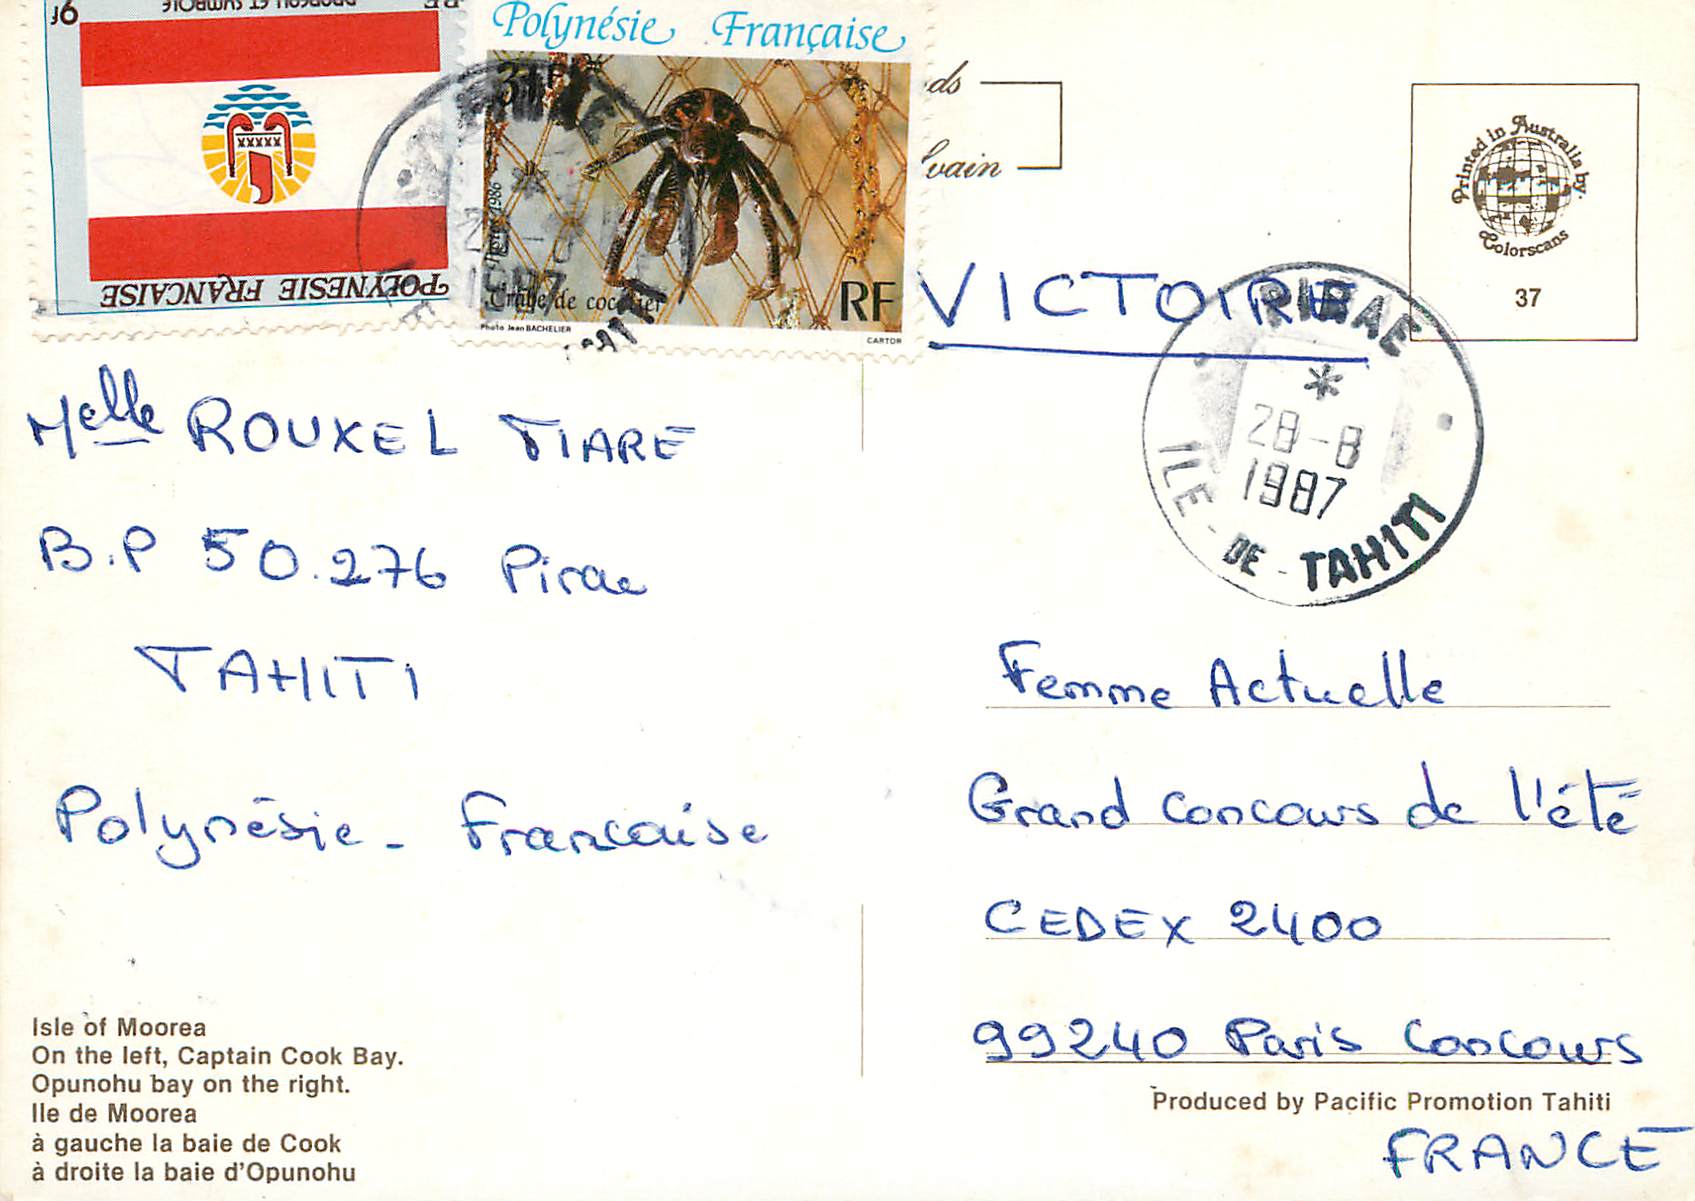 9F
DRAPEAU ET SYMBOLE
POLYNÉSIE FRANÇAISE
Polynésie Française
31F
Crabe de cocotier
RF
Photo Jean BACHELIER
CARTOR
1987
Printed in Australia by
Colorscans
37
VICTOIRE
PIRAE
*
28-8
1987
ILE - DE - TAHITI
Melle ROUXEL TIARE
B.P 50.276 Pirae
TAHITI
Polynésie - Francaise
Femme Actuelle
Grand Concours de l'été
CEDEX 2400
99240 Paris Concours
FRANCE
Isle of Moorea
On the left, Captain Cook Bay.
Opunohu bay on the right.
Ile de Moorea
à gauche la baie de Cook
à droite la baie d'Opunohu
Produced by Pacific Promotion Tahiti